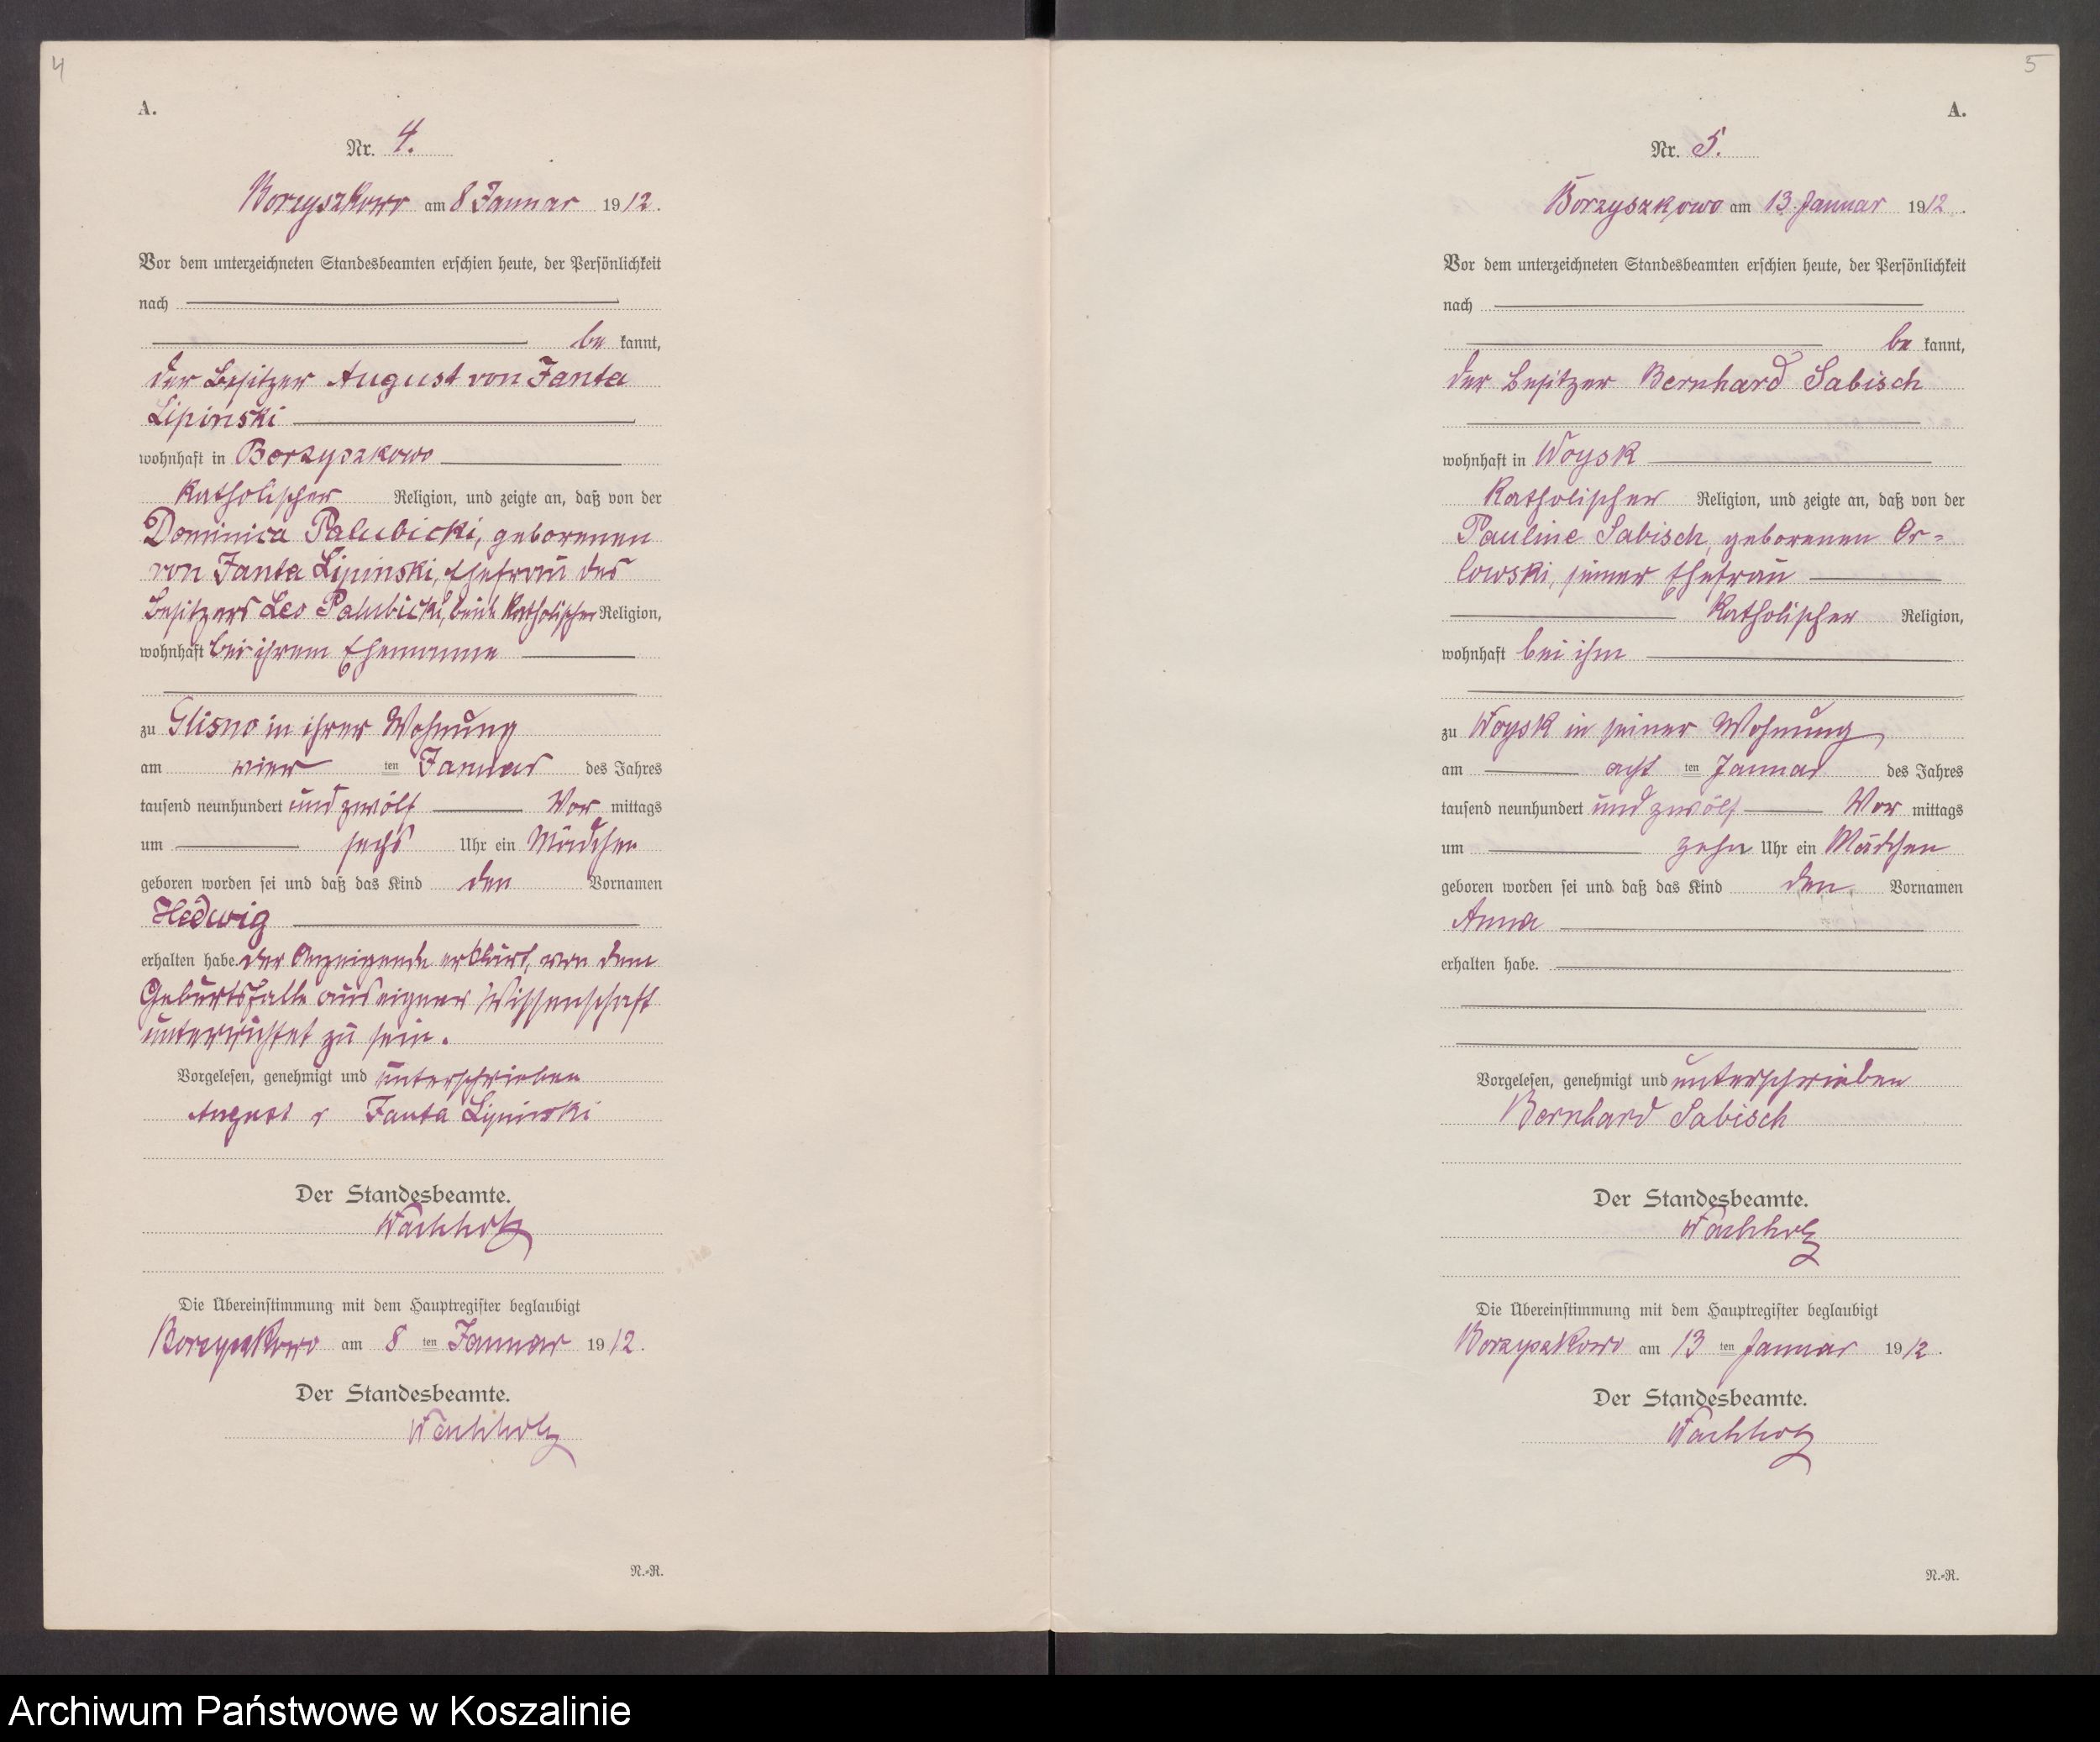 4
A.
Nr. 4.
Borzyszkowo am 8 Januar 1912.
Vor dem unterzeichneten Standesbeamten erschien heute, der Persönlichkeit
nach
be kannt,
der Besitzer August von Janta
Lipinski
wohnhaft in Borzyszkowo
katholischer Religion, und zeigte an, daß von der
Dominica Palubicki, geborenen
von Janta Lipinski, Ehefrau des
Besitzers Leo Palubicki, beide katholischer Religion,
wohnhaft bei ihrem Ehemanne
zu Glisno in ihrer Wohnung
am vier ten Januar des Jahres
tausend neunhundert und zwölf Vor mittags
um sechs Uhr ein Mädchen
geboren worden sei und daß das Kind den Vornamen
Hedwig
erhalten habe. Der Anzeigende erklärt, von dem
Geburtsfalle aus eigener Wissenschaft
unterrichtet zu sein.
Vorgelesen, genehmigt und unterschrieben
August v Janta Lipinski
Der Standesbeamte.
Wachholz
Die Übereinstimmung mit dem Hauptregister beglaubigt
Borzyszkowo am 8 ten Januar 1912.
Der Standesbeamte.
Wachholz
N.-R.
5
A.
Nr. 5.
Borzyszkowo am 13. Januar 1912.
Vor dem unterzeichneten Standesbeamten erschien heute, der Persönlichkeit
nach
be kannt,
der Besitzer Bernhard Sabisch
wohnhaft in Woysk
katholischer Religion, und zeigte an, daß von der
Pauline Sabisch, geborenen Or=
lowski, seiner Ehefrau
katholischer Religion,
wohnhaft bei ihm
zu Woysk in seiner Wohnung
am acht ten Januar des Jahres
tausend neunhundert und zwölf Vor mittags
um zehn Uhr ein Mädchen
geboren worden sei und daß das Kind den Vornamen
Anna
erhalten habe.
Vorgelesen, genehmigt und unterschrieben
Bernhard Sabisch
Der Standesbeamte.
Wachholz
Die Übereinstimmung mit dem Hauptregister beglaubigt
Borzyszkowo am 13 ten Januar 1912.
Der Standesbeamte.
Wachholz
N.-R.
Archiwum Państwowe w Koszalinie